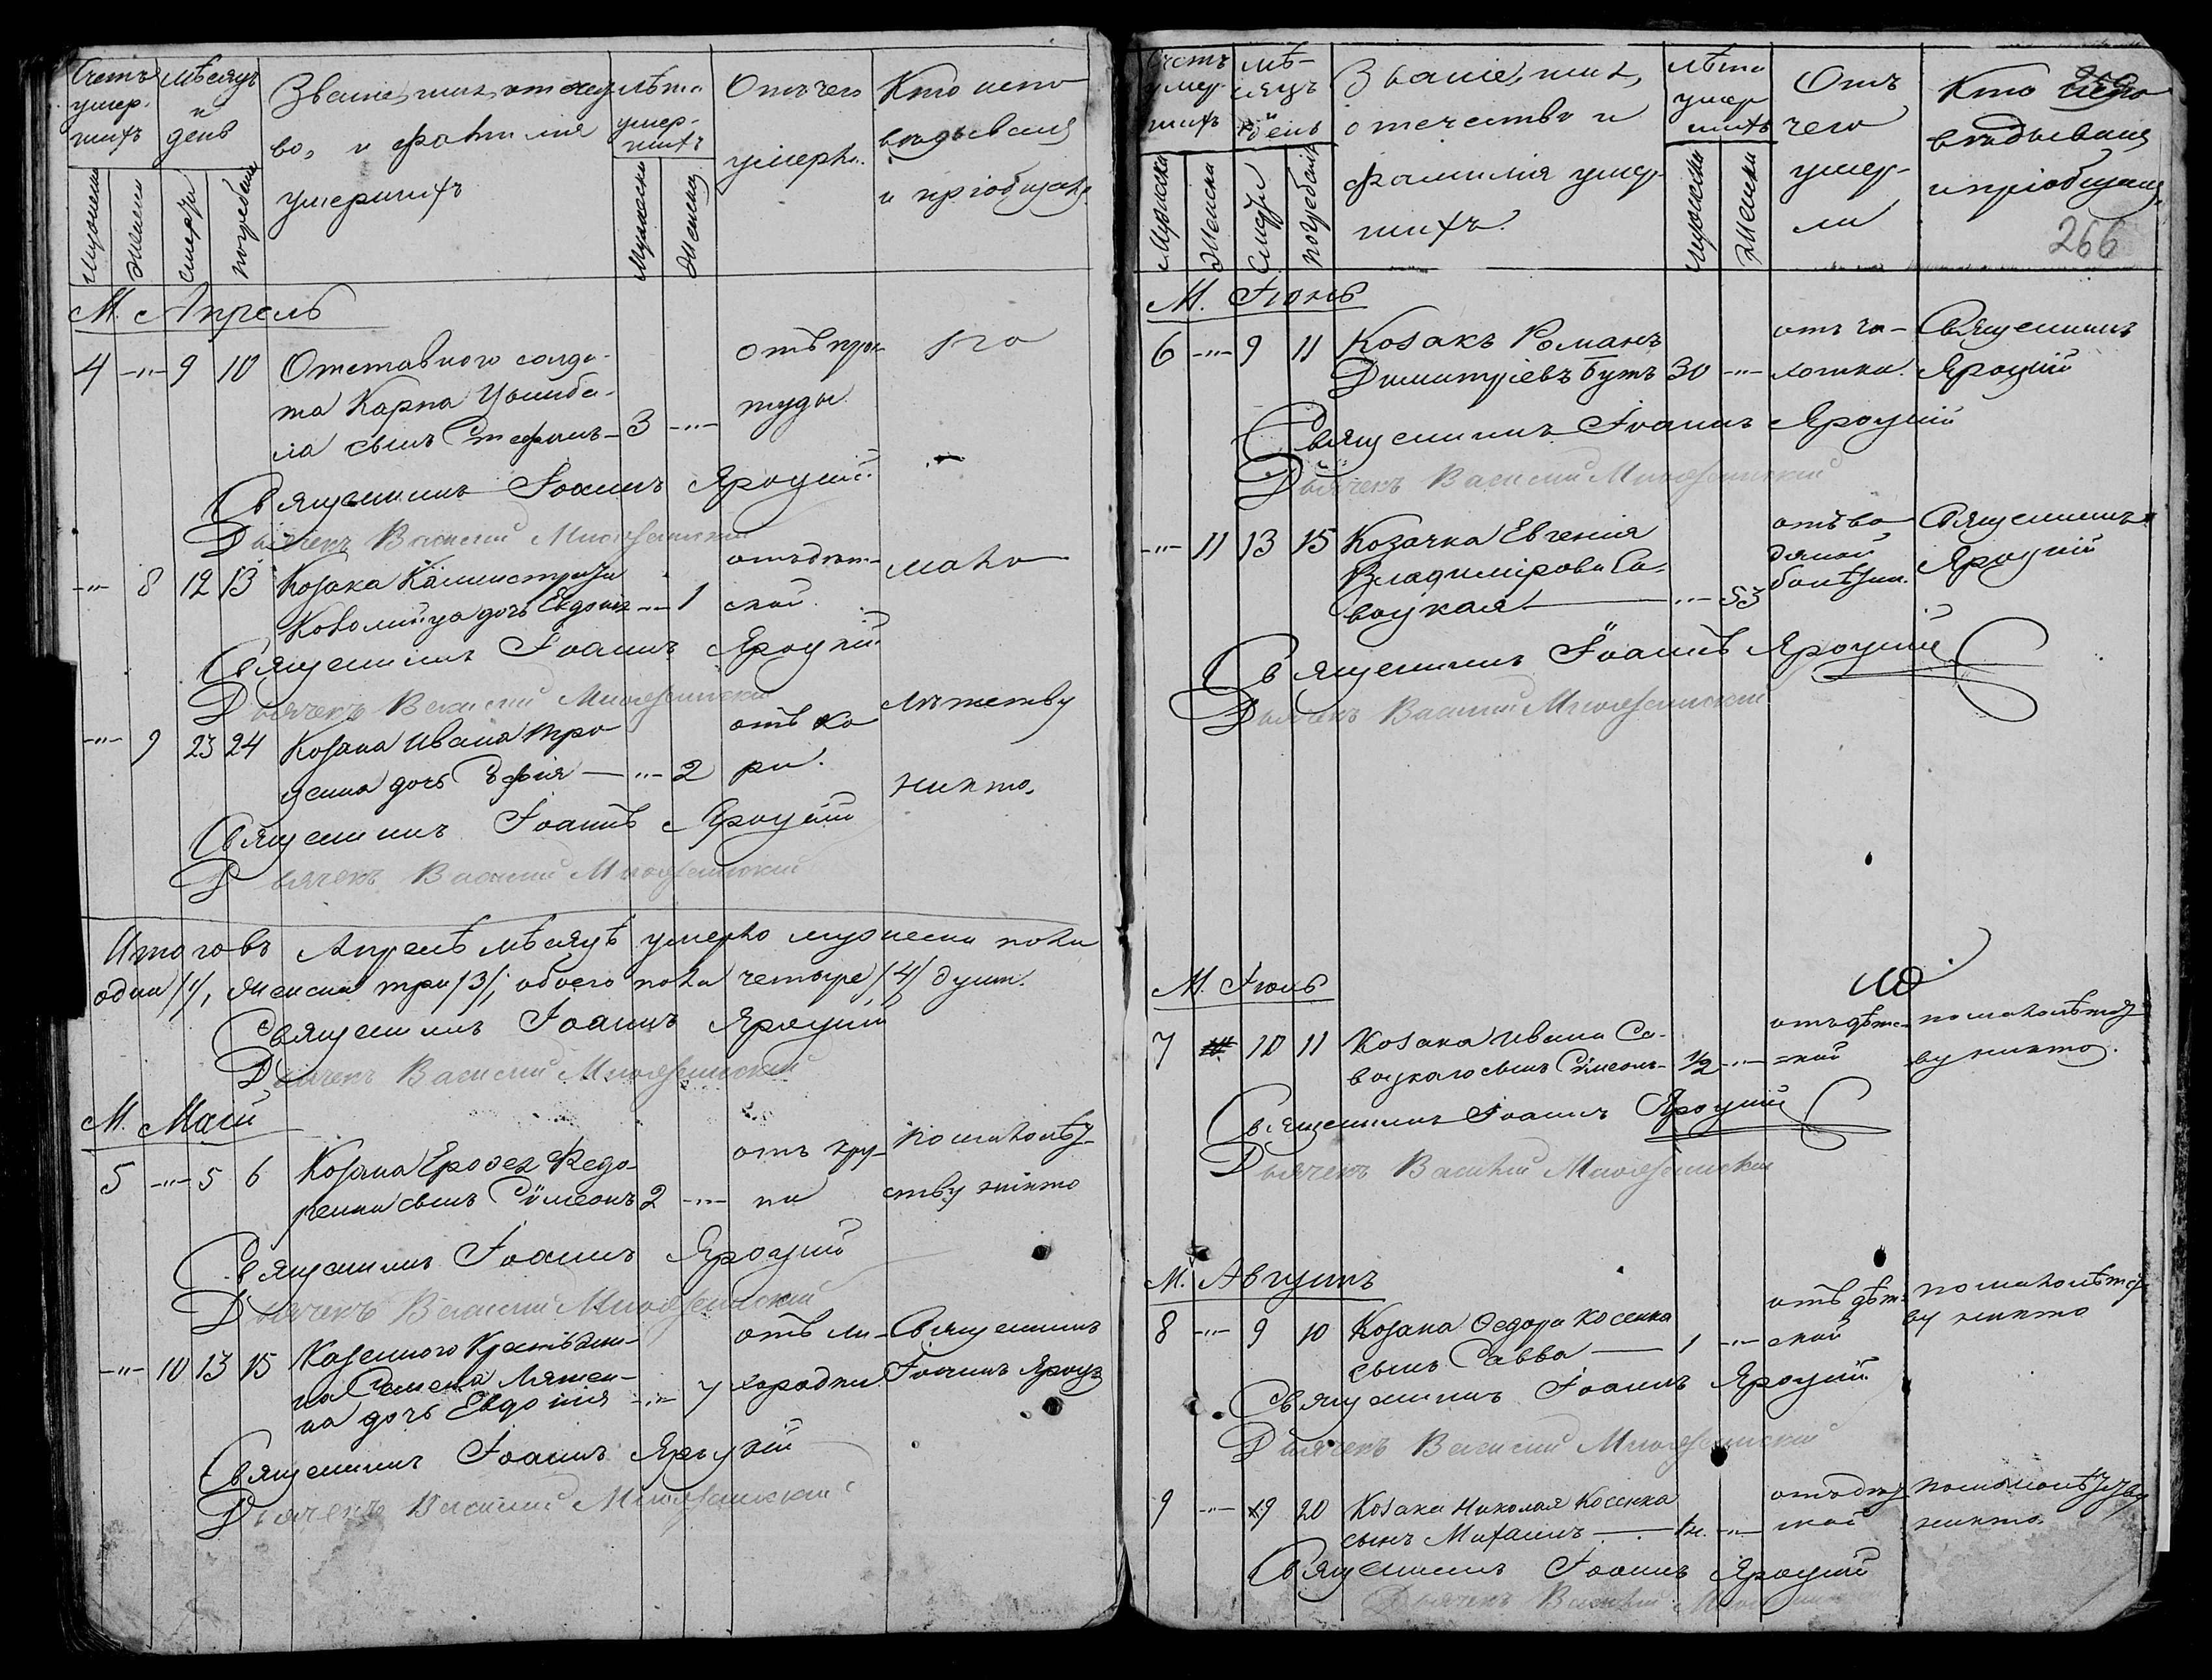 Счетъ умер-шихъ
Мѣсяцъ и день
Званіе, имя, отчест-
во, и фамилія
умершихъ
Лѣта умер-шихъ
Отъ чего
умерли.
Кто испо
вѣдывалъ
и пріобщалъ
Мужеска
Женска
Смерти
погребенія
Мужеска
Женска
М. Апрель
4 -"- 9 10 Отставного солда-
та Карпа Цымба-
ла сынъ Стефанъ - 3 -"-
отъ прос-
туды
по
Священникъ Іоаннъ Яроцкій
Дьячекъ Василій
-"- 8 12 13 Козака Калистрата
дочь Евдокія -"- 1
отъ дѣт-
ской.
мало
Священникъ Іоаннъ Яроцкій
Дьячекъ Василій
-"- 9 23 24 Козака Ивана Тро
ценка дочь -"- 2
отъ ко
ри.
лѣтству
никто.
Священникъ Іоаннъ Яроцкій
Дьячекъ Василій
Итого въ Апрелѣ мѣсяцѣ умерло мужеска пола
одна /1/, женска три /3/, обоего пола четыре /4/ душ.
Священникъ Іоаннъ Яроцкій
Дьячекъ Василій
М. Маій
5 -"- 5 6 Козака Федо-
ренка сынъ Сѵмеонъ 2 -"-
отъ кру-
па
по малолѣт-
ству никто
Священникъ Іоаннъ Яроцкій
Дьячекъ Василій
-"- 10 13 15 Казенного Крестьяни-
на Семена Ляшен-
ка дочь Евдокія -"- 7
отъ ли-
хорадки
Священникъ
Іоаннъ Яроцк
Священникъ Іоаннъ Яроцкій
Дьячекъ Василій
Счетъ умер-шихъ
Мѣ-сяцъ и день
Званіе, имя,
отечество и
фамилія умер-
шихъ.
Лѣта умер шихъ
Отъ
чего
умер-
ли
Кто испо
вѣдывалъ
и пріобщалъ
266
Мужеска
Женска
Смерти
погребенія
Мужеска
Женска
М. Іюнь
6 -"- 9 11 Козакъ Романъ
Димитріевъ Бутъ 30 -"-
отъ ча-
хотки.
Священникъ
Яроцкій
Священникъ Іоаннъ Яроцкій
Дьячекъ Василій
-"- 11 13 15 Козачка Евгенія
Владимірова Са-
воцкая -"- 53
отъ во
дяной
болѣзни.
Священникъ
Яроцкій
Священникъ Іоаннъ Яроцкій
Дьячекъ Василій
М. Іюль
7 10 11 Козака Ивана Са-
воцкаго сынъ Сѵмеонъ - 1/2 -"-
отъ дѣт-
ской
по малолѣтст
ву никто.
Священникъ Іоаннъ Яроцкій
Дьячекъ Василій
М. Августъ
8 -"- 9 10 Козака Федора Косенка
сынъ Савва 1 -"-
отъ дѣт-
ской
по малолѣтст
ву никто
Священникъ Іоаннъ Яроцкій
Дьячекъ Василій
9 -"- 19 20 Козака Николая Косенка
сынъ Михаилъ -"-
отъ дѣт
ской
по малолѣтству
никто.
Священникъ Іоаннъ Яроцкій
Дьячекъ Василій